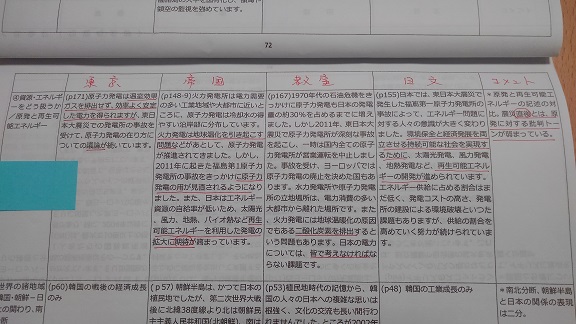 72
東京
帝国
教室
日文
コメント
④資源・エネルギーをどう扱うか／原発と再生可能エネルギー
(p171)原子力発電は温室効果
ガスを排出せず、効率よく安定
した電力を得られますが、東日
本大震災での発電所の事故を
受けて、原子力発電の在り方に
ついての議論が続いています。
(p148-9)火力発電所は電力需要
の多い工業地域や大都市に近いと
ころに、原子力発電は冷却水の得
やすい沿岸部に分布しています。
火力発電は地球温暖化を引き起こす
問題などがあとして、原子力発電
が推進されてきました。しかし、
2011年に起きた福島第1原子力
発電所の事故をきっかけに原子力
発電の用が見直されるようになり
ました。また、日本はエネルギー
資源の自給率が低いため、太陽光
、風力、地熱、バイオ熱など再生
可能エネルギーを利用した発電の
拡大に期待が高まっています。
(p167)1970年代の石油危機をき
っかけに原子力発電も日本の発電
量の約30%を占めるまでに増え
ました。しかし2011年、東日本大
震災で原子力発電所が深刻な事故
を起こし、一時は国内全ての原子
力発電所が営業運転を中止しまし
た。事故を受け、ヨーロッパでは
原子力発電の廃止を決めた国もあ
ります。水力発電所や原子力発電
所の立地場所は、電力消費の多い
大都市から離れた場所です。また
、火力発電には地球温暖化の原因
でもある二酸化炭素を排出すると
いう問題もあります。日本の電力
については、皆で考えなければな
らない課題です。
(p155)日本では、東日本大震災で
発生した福島第一原子力発電所の
事故によって、エネルギー問題に
対する人々の意識が大きく変わりま
した。環境保全と経済発展を両
立させる持続可能な社会を実現す
るために、太陽光発電、風力発電
、地熱発電など、再生可能エネル
ギーの開発が進められています。
エネルギー供給に占める割合はま
だ低く、発電コストの高さ、発電
所の建設による環境破壊といった
課題もありますが、供給の割合を
高めていく努力が続けられていま
す。
*原発と再生可能エ
ネルギーの記述の対
比。震災直後とは、原
発に対する批判トー
ンが弱まっている。
(p60)韓国の戦後の経済成長
のみ
(p57) 朝鮮半島は、かつて日本の
植民地でしたが、第二次世界大戦
後に北緯38度線より北は朝鮮民
(p53)植民地時代の記憶から、韓国
の人々の日本への複雑な思いは
根強く、文化の交流も長い間行わ
(p48) 韓国の工業成長のみ
*南北分断、朝鮮半島
と日本の関係の表現
は二分。